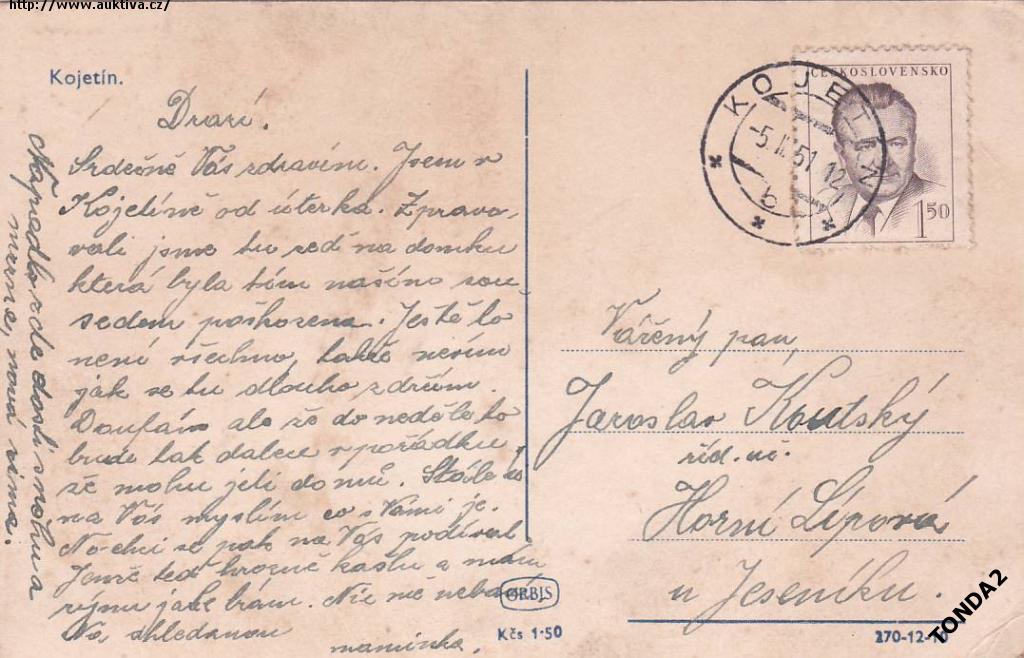 http://www.auktiva.cz/
Kojetín.
Drazí.
Srdečně Vás zdravím. Jsem v
Kojetíně od úterka. Zpravo-
vali jsme tu zeď na domku
která byla tím našeho sou-
sedem poškozena. Ještě to
není všechno, takže nevím
jak se tu dlouho zdržím.
Doufám ale že do neděle to
bude tak dalece v pořádku
že mohu jeti domů. Stále
na Vás myslím co s Vámi je.
No chci se pak na Vás podívat
teď hrozně kašlu a mám
rýmu jako brám. Nic mě nebaví
Na shledanou
maminka.
Napadlo zde dosti sněhu a
mrzne, nová zima.
ORBIS
Kčs 1·50
ČESKOSLOVENSKO
1 50
KOJETÍN
-5.II.51 12
Vážený pan
Jaroslav Koutský
říd. uč.
Horní Lipová
u Jeseníku.
270-12-10
TONDA2